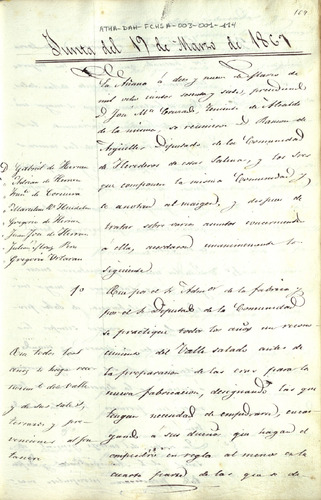 164
ATHA-DAH-FCHSA-003-001-434
Junta del 19 de Marzo de 1867
En Añana á diez y nueve de Marzo de
mil ocho cientos sesenta y siete, presidiendo
D. José Mª Conrado, Teniente de Alcalde
de la misma, se reunieron D. Ramon de
Argüelles Diputado de la Comunidad
de Herederos de estas Salinas, y los Sres
que componen la misma Comunidad y
se anotan al margen, y despues de
tratar sobre varios asuntos concernientes
á ella, acordaron unanimemente lo
siguiente
D. Gabriel de Herran
de Herran
de
Marcelino
Gregorio de Herran
Juan José de Herran
Julian
Gregorio
1º
Que por el Sr Admor de la fabrica y
por el Sr Diputado de la Comunidad
se practique todos los años un recono
cimiento del Valle salado antes de
la preparacion de las eras para la
nueva fabricacion, designando las que
tengan necesidad de empedrarse, encar
gando á sus dueños que hagan el
empedrado en regla al menos en la
cuarta parte de las que se de-
Que todos los
años se haga recono
cimiento del Valle
y de sus
terrazos y pre-
venciones al